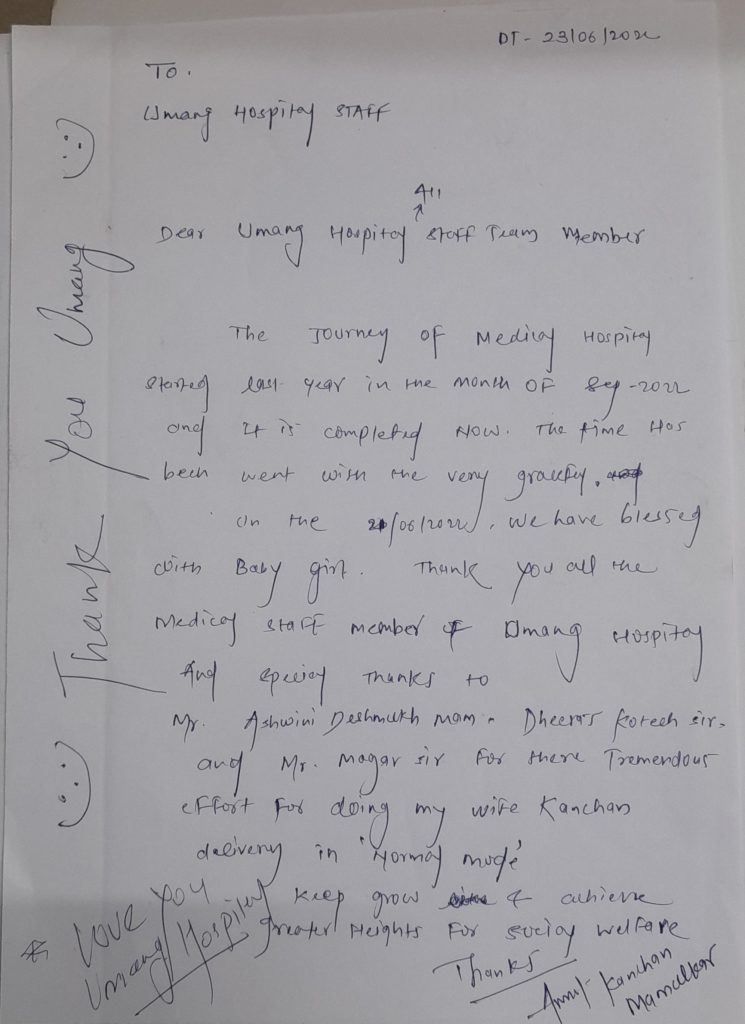 DT - 23/06/2022
To.
Umang Hospital STAFF
All
Dear Umang Hospital Staff Team Member
The Journey of Medical Hospital
started last year in the month OF Sep-2022
and It is completed Now. The time Has
been went with the very
on the 21/06/2022, we have blessed
with Baby girl. Thank you all the
Medical staff member of Umang Hospital
And special Thanks to
Mr. Ashwini Deshmukh mam. Dheeraj Kotech sir.
and Mr. Magar sir For there Tremendous
effort For doing my wife Kanchan
delivery in 'Normal mode'
Keep grow & achieve
greater Heights For social welfare
Thanks
Kanchan
Mamalkar
Thank You Umang
* Love You
Umang Hospital